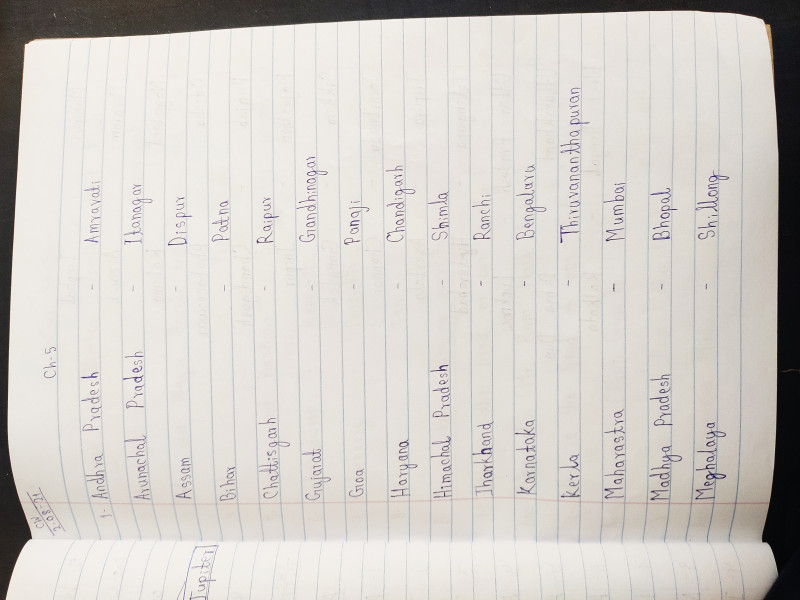 CW
2-08-21
Ch-5
1- Andhra Pradesh - Amravati
Arunachal Pradesh - Itanagar
Assam - Dispur
Bihar - Patna
Chattisgarh - Raipur
Gujarat - Gandhinagar
Goa - Panaji
Haryana - Chandigarh
Himachal Pradesh - Shimla
Jharkhand - Ranchi
Karnataka - Bengaluru
Kerla - Thiruvananthapuran
Maharastra - Mumbai
Madhya Pradesh - Bhopal
Meghalaya - Shillong
Jupiter